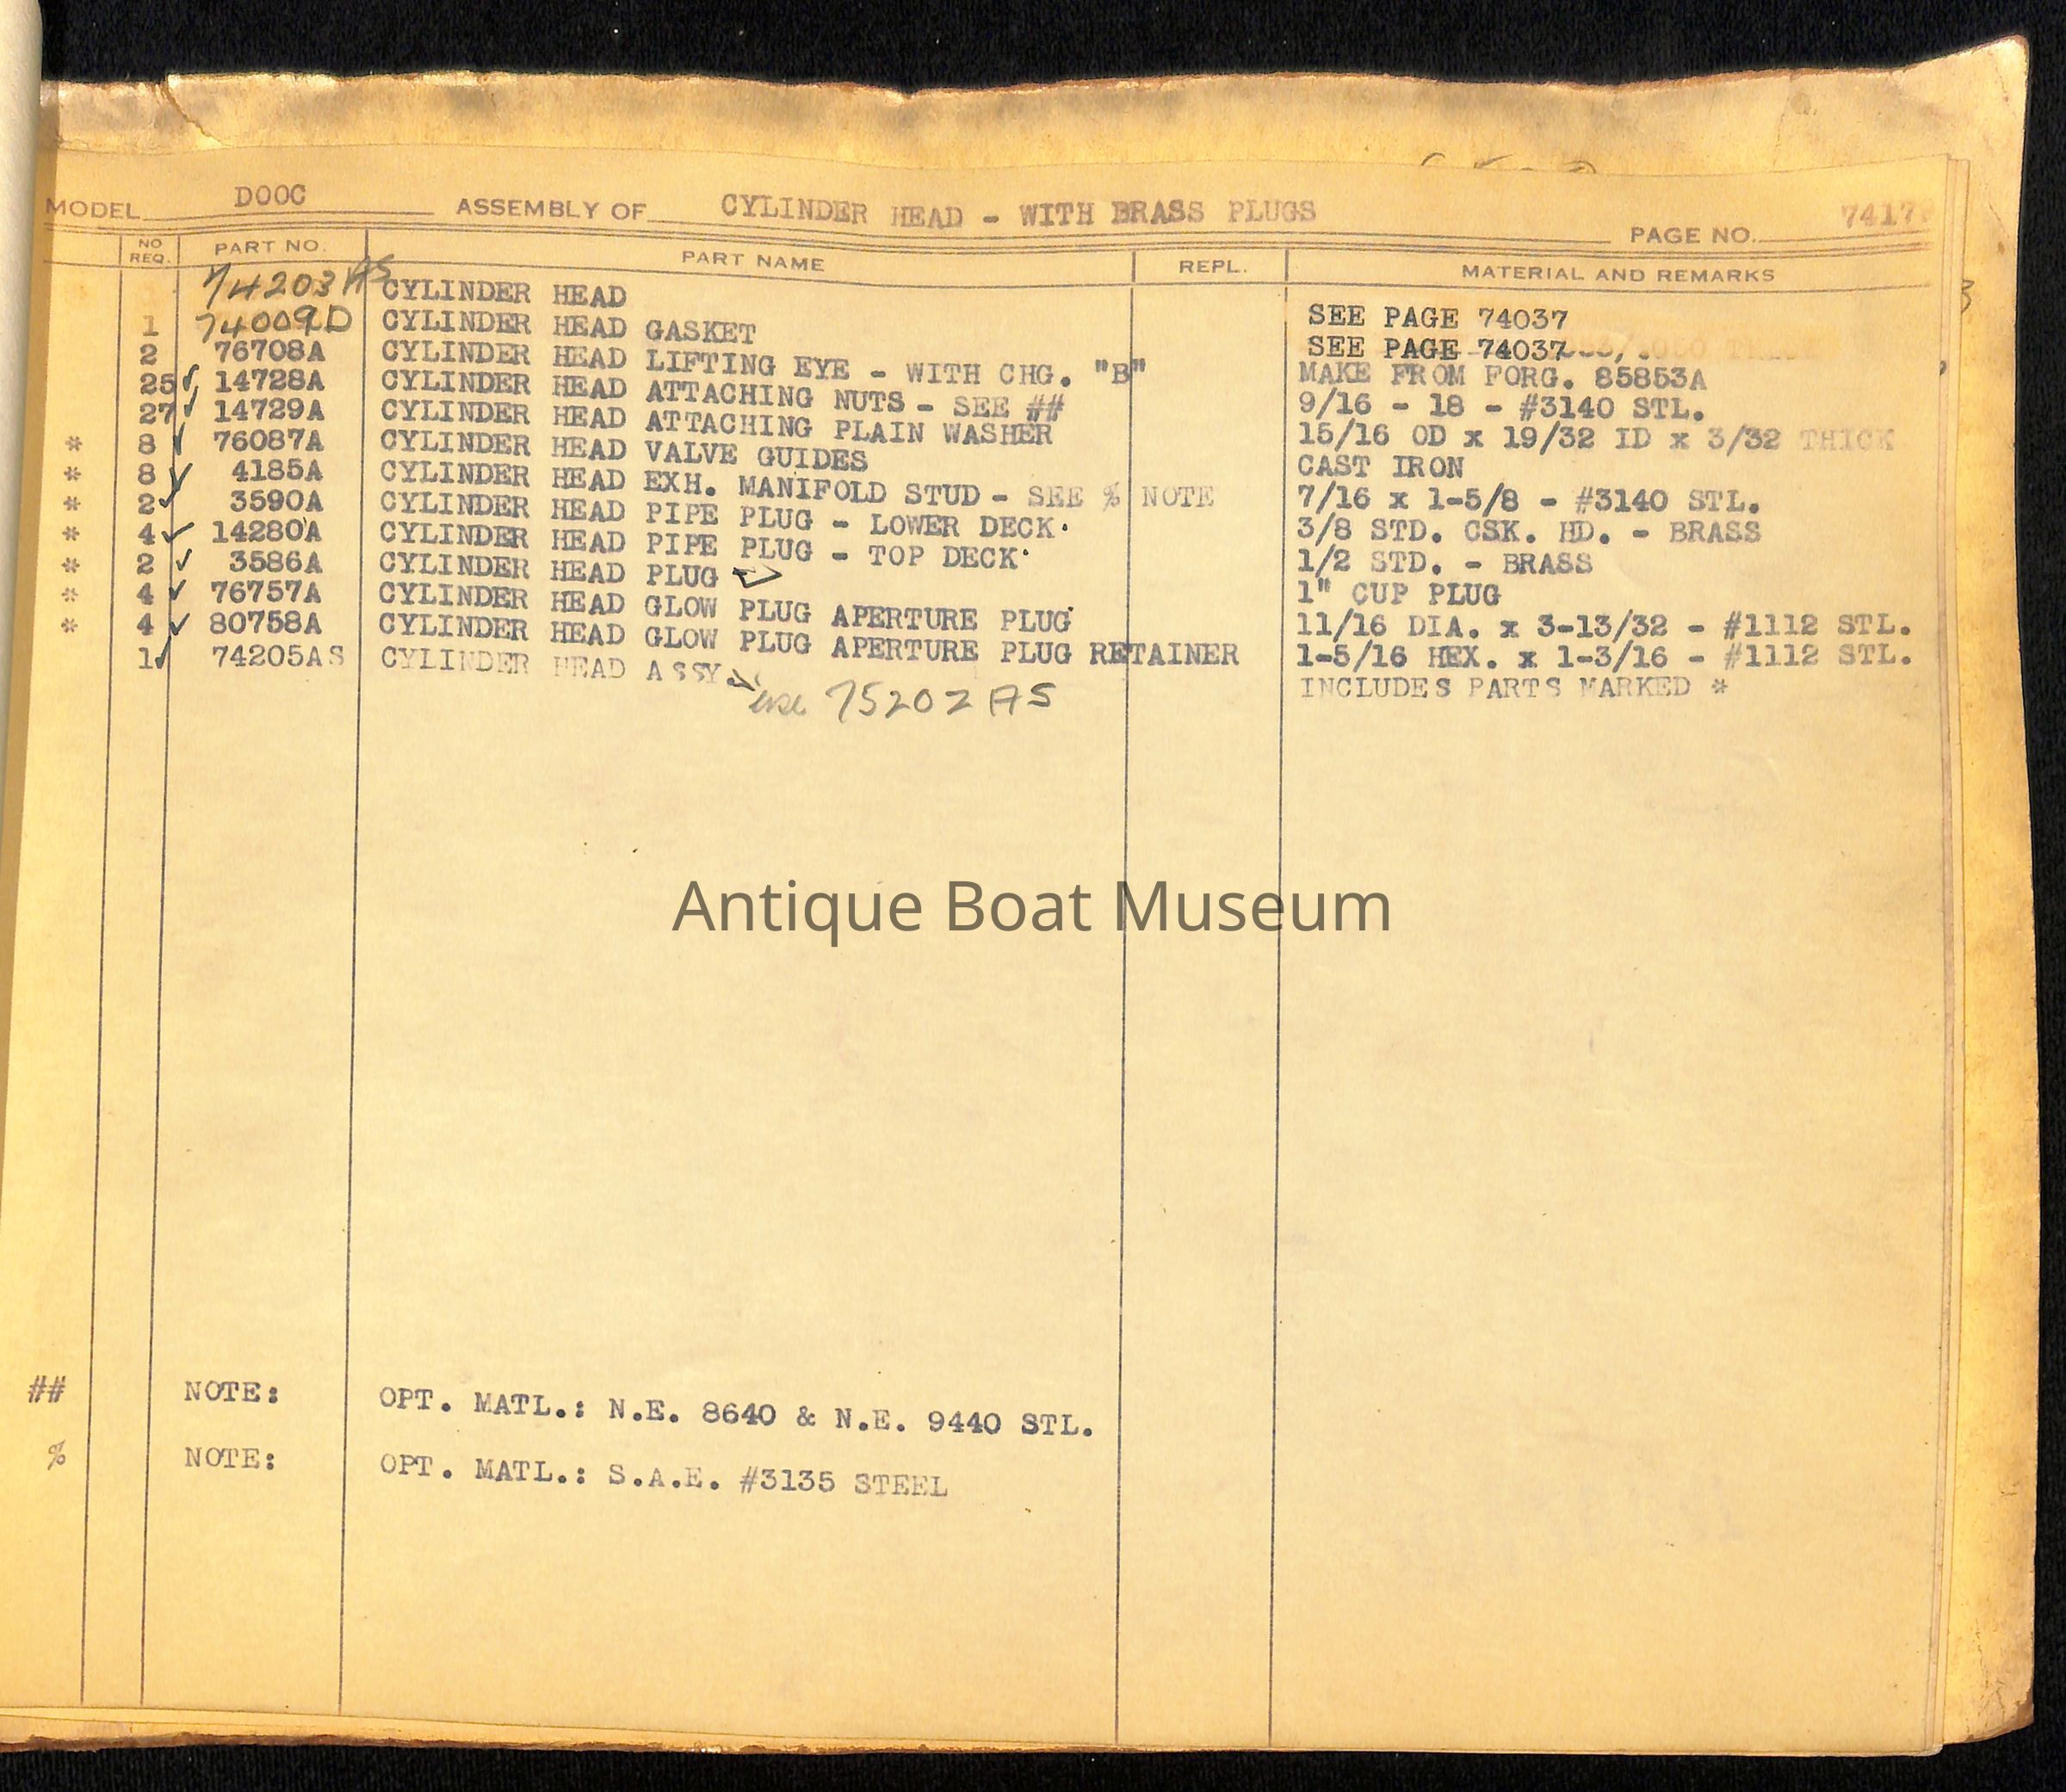 MODEL DOOC ASSEMBLY OF CYLINDER HEAD - WITH BRASS PLUGS PAGE NO. 7417
NO. REQ. PART NO. PART NAME REPL. MATERIAL AND REMARKS
74203AS CYLINDER HEAD SEE PAGE 74037
1 74009D CYLINDER HEAD GASKET SEE PAGE 74037
2 76708A CYLINDER HEAD LIFTING EYE - WITH CHG. "B" MAKE FROM FORG. 85853A
25 ✓ 14728A CYLINDER HEAD ATTACHING NUTS - SEE ## 9/16 - 18 - #3140 STL.
27 ✓ 14729A CYLINDER HEAD ATTACHING PLAIN WASHER 15/16 OD x 19/32 ID x 3/32 THICK
* 8 ✓ 76087A CYLINDER HEAD VALVE GUIDES CAST IRON
* 8 ✓ 4185A CYLINDER HEAD EXH. MANIFOLD STUD - SEE % NOTE 7/16 x 1-5/8 - #3140 STL.
* 2 ✓ 3590A CYLINDER HEAD PIPE PLUG - LOWER DECK 3/8 STD. CSK. HD. - BRASS
* 4 ✓ 14280A CYLINDER HEAD PIPE PLUG - TOP DECK 1/2 STD. - BRASS
* 2 ✓ 3586A CYLINDER HEAD PLUG 1" CUP PLUG
* 4 ✓ 76757A CYLINDER HEAD GLOW PLUG APERTURE PLUG 11/16 DIA. x 3-13/32 - #1112 STL.
* 4 ✓ 80758A CYLINDER HEAD GLOW PLUG APERTURE PLUG RETAINER 1-5/16 HEX. x 1-3/16 - #1112 STL.
1 ✓ 74205AS CYLINDER HEAD ASSY. INCLUDES PARTS MARKED *
use 75202 AS
Antique Boat Museum
## NOTE: OPT. MATL.: N.E. 8640 & N.E. 9440 STL.
% NOTE: OPT. MATL.: S.A.E. #3135 STEEL